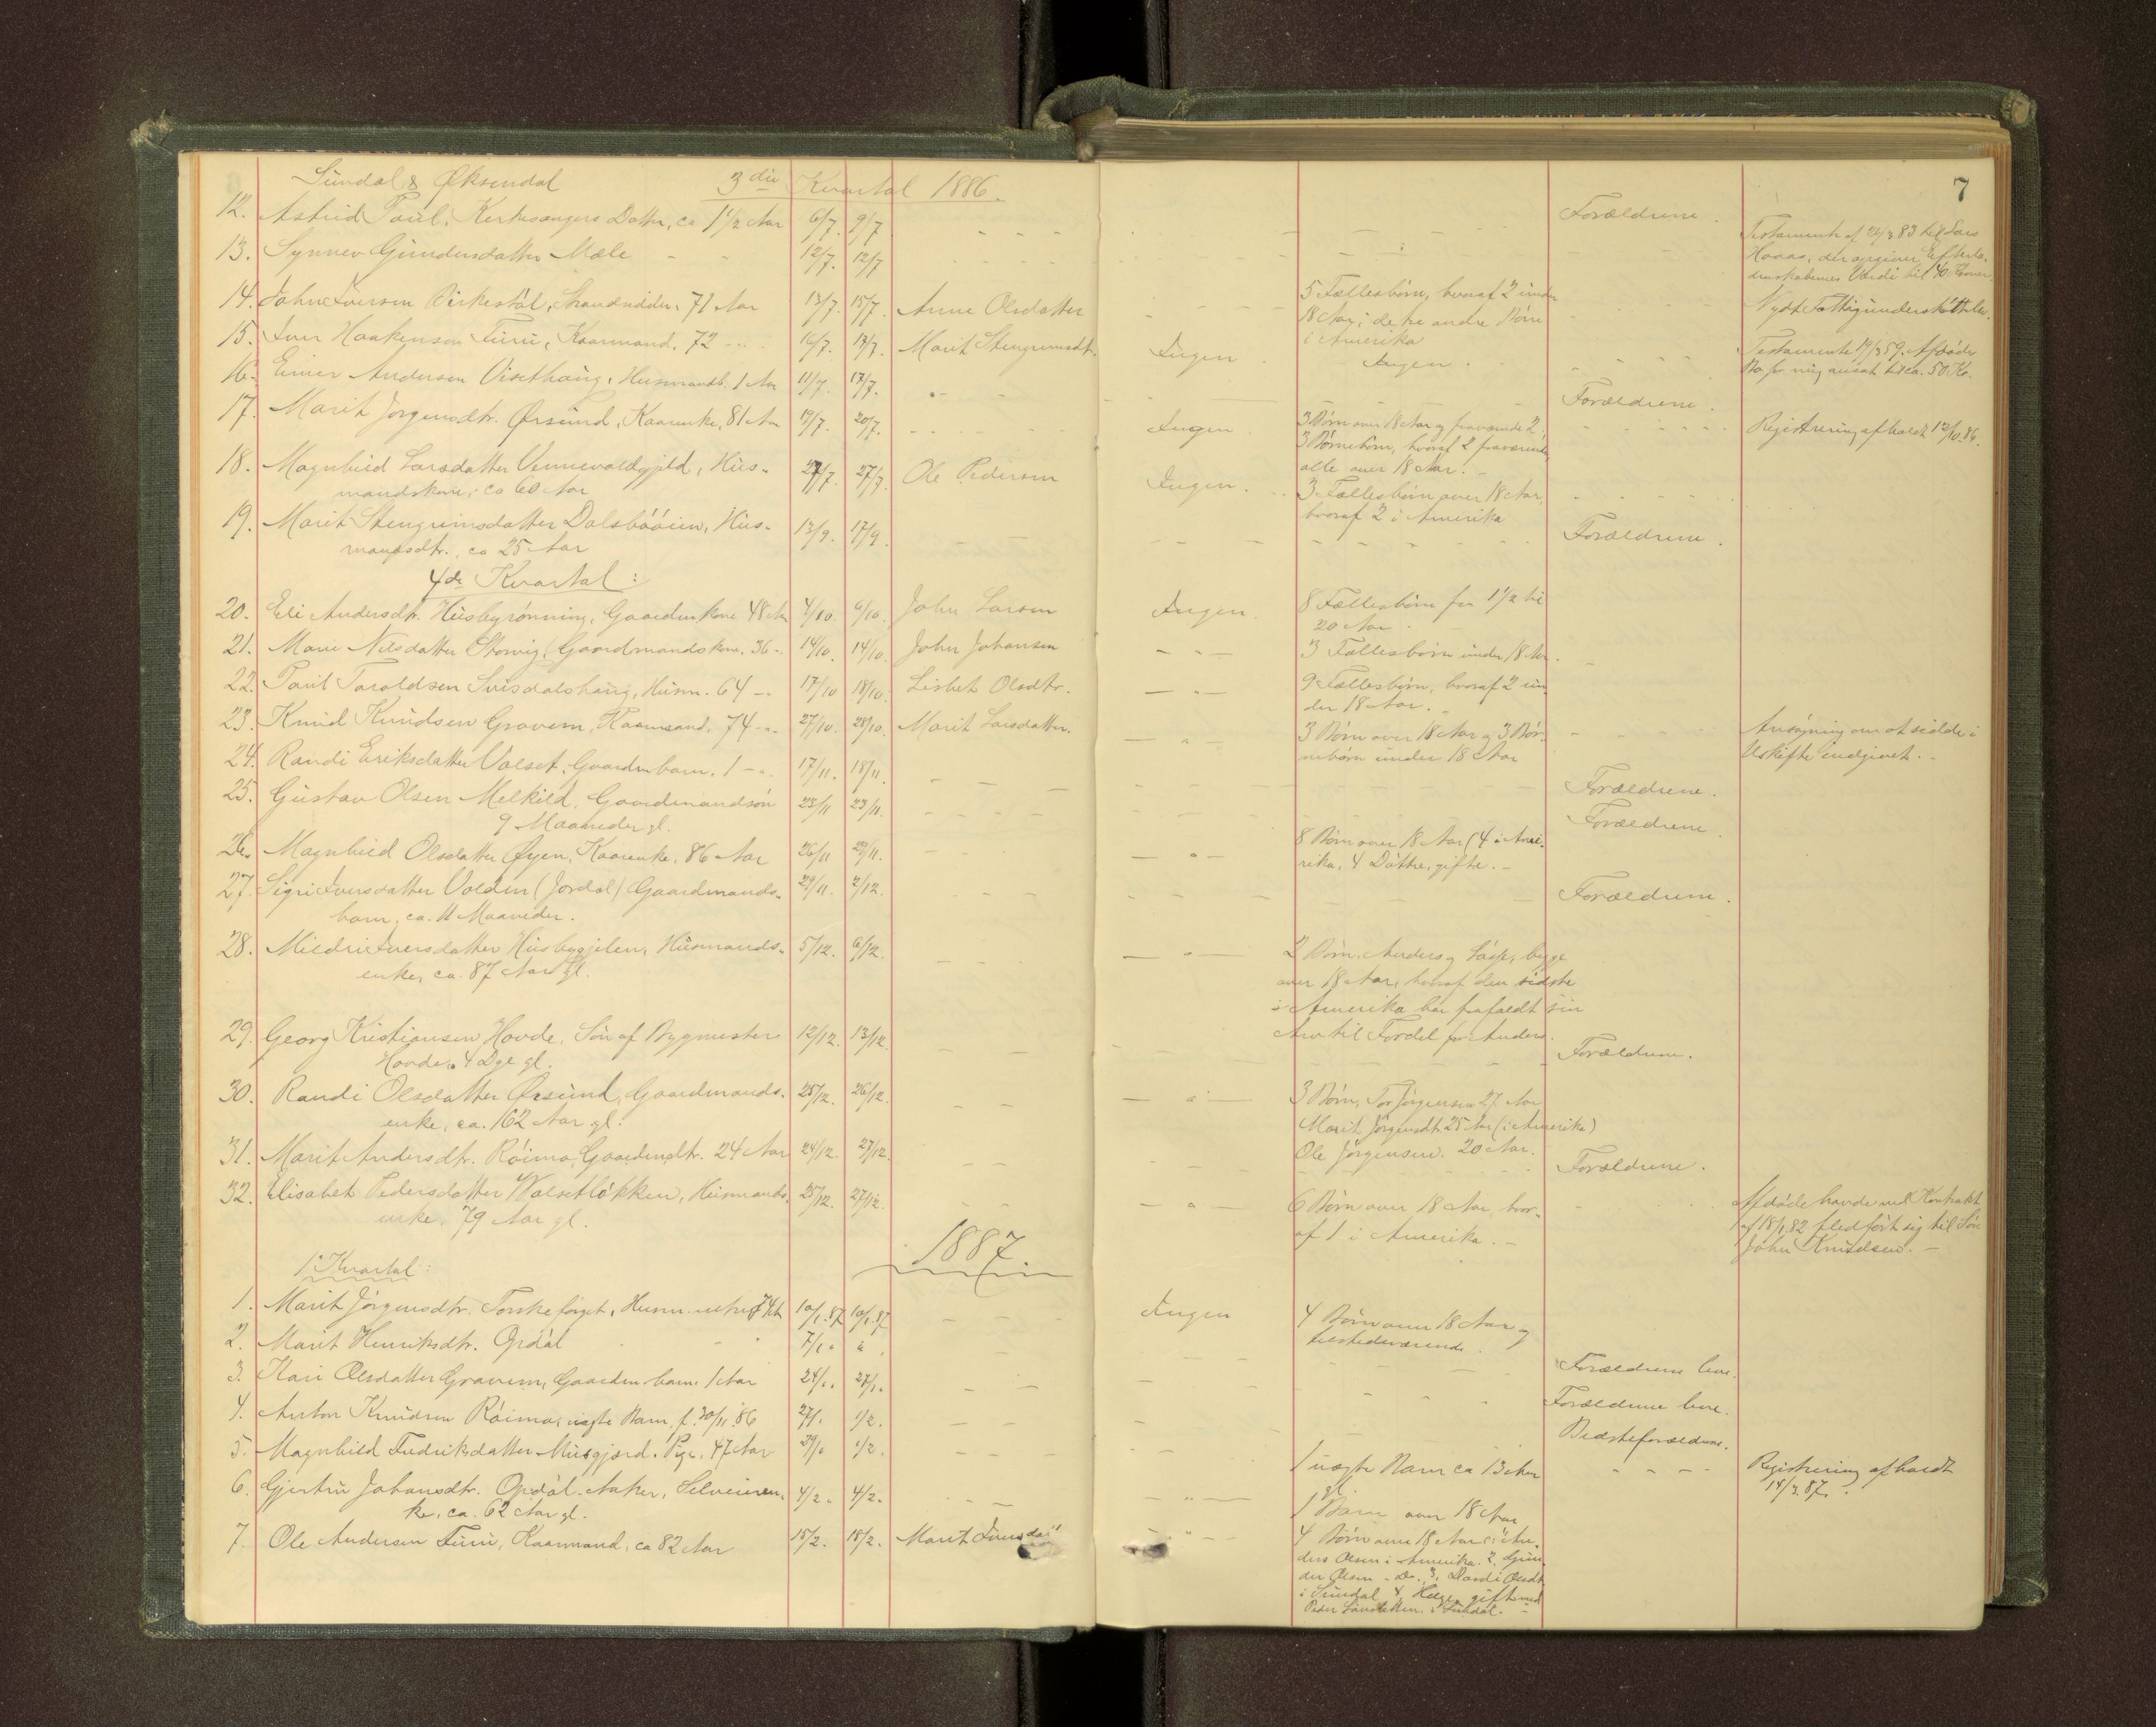 7
Sundal & Øksendal 3die Kvartal 1886.
12. Astrid Paul Kirkesangers Datter, ca 1 1/2 Aar 6/7. 9/7 Forældrene.
13. Synnev Gundersdatter Mæle 12/7. 12/7 Testamente af 26/3 83 til Lars
Haaas, der opgiver Efterla-
denskabernes Værdi til 40 Kroner
14. John Iversen Virkestøl, 71 Aar 13/7. 15/7. Anne Olsdatter 5 Fællesbørn, hvoraf 2 under
18 Aar; de tre andre Børn
i Amerika
Nydt Fattigunderstøttelse.
15. Iver Haakensen Furu, Kaarmand. 72 16/7. 17/7. Marit Stengrimsdt. Ingen. Ingen. Testamente 19/3 59. Afdøde
Bo for mig ansat til ca. 50 Kr.
16. Einer Andersen Visethaug, Husmandsb. 1 Aar 11/7. 17/7. Forældrene.
17. Marit Jørgensdtr. Ørsund, Kaarenke, 81 Aar 19/7. 20/7. Ingen 3 Børn over 18 Aar og fraværende 2.
3 Børnebørn, hvoraf 2 fraværende,
alle over 18 Aar.
Registrering afholdt 12/10.86.
18. Magnhild Larsdatter Vennevoldgjeld, Hus-
mandskone, ca 60 Aar 27/7. 27/7. Ole Pedersen Ingen. 3 Fællesbørn over 18 Aar,
hvoraf 2 i Amerika
19. Marit Stengrimsdatter Dalsbøøien, Hus-
mandsdtr., ca 25 Aar 13/9. 17/9. Forældrene.
4de Kvartal:
20. Eli Andersdtr. Husbyrønning, Gaardmkone 48 Aar 4/10. 6/10. John Larsen Ingen. 8 Fællesbørn fra 1 1/2 til
20 Aar.
21. Marie Nilsdatter Storvig (Gaardmandskone. 36 14/10. 14/10. John Johansen 3 Fællesbørn under 18 Aar.
22. Paul Taraldsen Svisdalshaug, Husm. 64 17/10 18/10. Lisbet Olsdtr. 9 Fællesbørn, hvoraf 2 un-
der 18 Aar.
23. Knud Knudsen Gravem, Kaarmand. 74 27/10. 28/10. Marit Larsdatter. 3 Børn over 18 Aar og 3 Bør-
nebørn under 18 Aar
Ansøgning om at sidde i
Uskifte indgivet.
24. Randi Eriksdatter Volset, Gaardmbarn, 1 17/11. 18/11. Forældrene.
25. Gustav Olsen Melkild, Gaardmandsøn
9 Maaneder gl. 23/11 23/11. Forældrene.
26. Magnhild Olsdatter Øyen, Kaarenke, 86 Aar 26/11 29/11. 8 Børn over 18 Aar (4 i Ame-
rika, 4 Døttre, gifte.
27. Sigri Iversdatter Volden (Jordal) Gaardmands-
barn, ca. 11 Maaneder. 29/11. 2/12. Forældrene.
28. Mildri Iversdatter Husbygjelen, Husmands-
enke, ca. 87 Aar gl. 5/12. 6/12. 2 Børn, Anders og Lasse, begge
over 18 Aar, hvoraf den sidste
i Amerika har frafaldt sin
Arv til Fordel for Anders.
29. Georg Kristiansen Hovde, Søn af Bygmester
Hovde, 4 Dge gl. 12/12. 13/12. Forældrene.
30. Randi Olsdatter Ørsund, Gaardmands-
enke, ca. 62 Aar gl. 25/12. 26/12. 3 Børn, Tor Jørgensen 27 Aar
Marit Jørgensdt. 25 Aar (i Amerika)
Ole Jørgensen. 20 Aar.
31. Marit Andersdtr. Røimo, Gaardmdtr. 24 Aar 24/12. 27/12. Forældrene.
32. Elisabet Pedersdatter Volsetløkken, Husmands-
enke, 79 Aar gl. 25/12. 27/12. 6 Børn over 18 Aar, hvor-
af 1 i Amerika.
Afdøde havde ved Kontrakt
af 18/1.82 fledført sig til Søn
John Knudsen.
1887.
1' Kvartal:
1. Marit Jørgensdtr. Torskeførget, Husm. enke, 74 Aar 10/1.87 10/1.87 Ingen 4 Børn over 18 Aar og
tilstedeværende.
2. Marit Henriksdtr. Opdøl 7/1
3. Kari Olsdatter Gravem, Gaardm barn 1 Aar 24/1. 27/1. Forældrene leve.
4. Anton Knudsen Røimo, uægte Barn, f. 30/11 86 27/1. 1/2. Forældrene leve.
5. Magnhild Fredriksdatter Musgjerd. Pige, 47 Aar 29/1 1/2. Bedsteforældrene.
1 uægte Barn ca 13 Aar
gl.
Registrering afholdt
14/3.87.
6. Gjertru Johansdtr. Opdøl-Aaker, Selveieren-
ke, ca. 62 Aar gl. 4/2. 4/2. 1 Barn over 18 Aar
7. Ole Andersen Furu, Kaarmand, ca 82 Aar 15/2. 18/2. Marit 4 Børn over 18 Aar: 1. An-
ders Olsen i Amerika. 2. Gun-
der Olsen - Do., 3, Olsdt.
i Sundal 4, Helge gift med
Peder i Sundal.